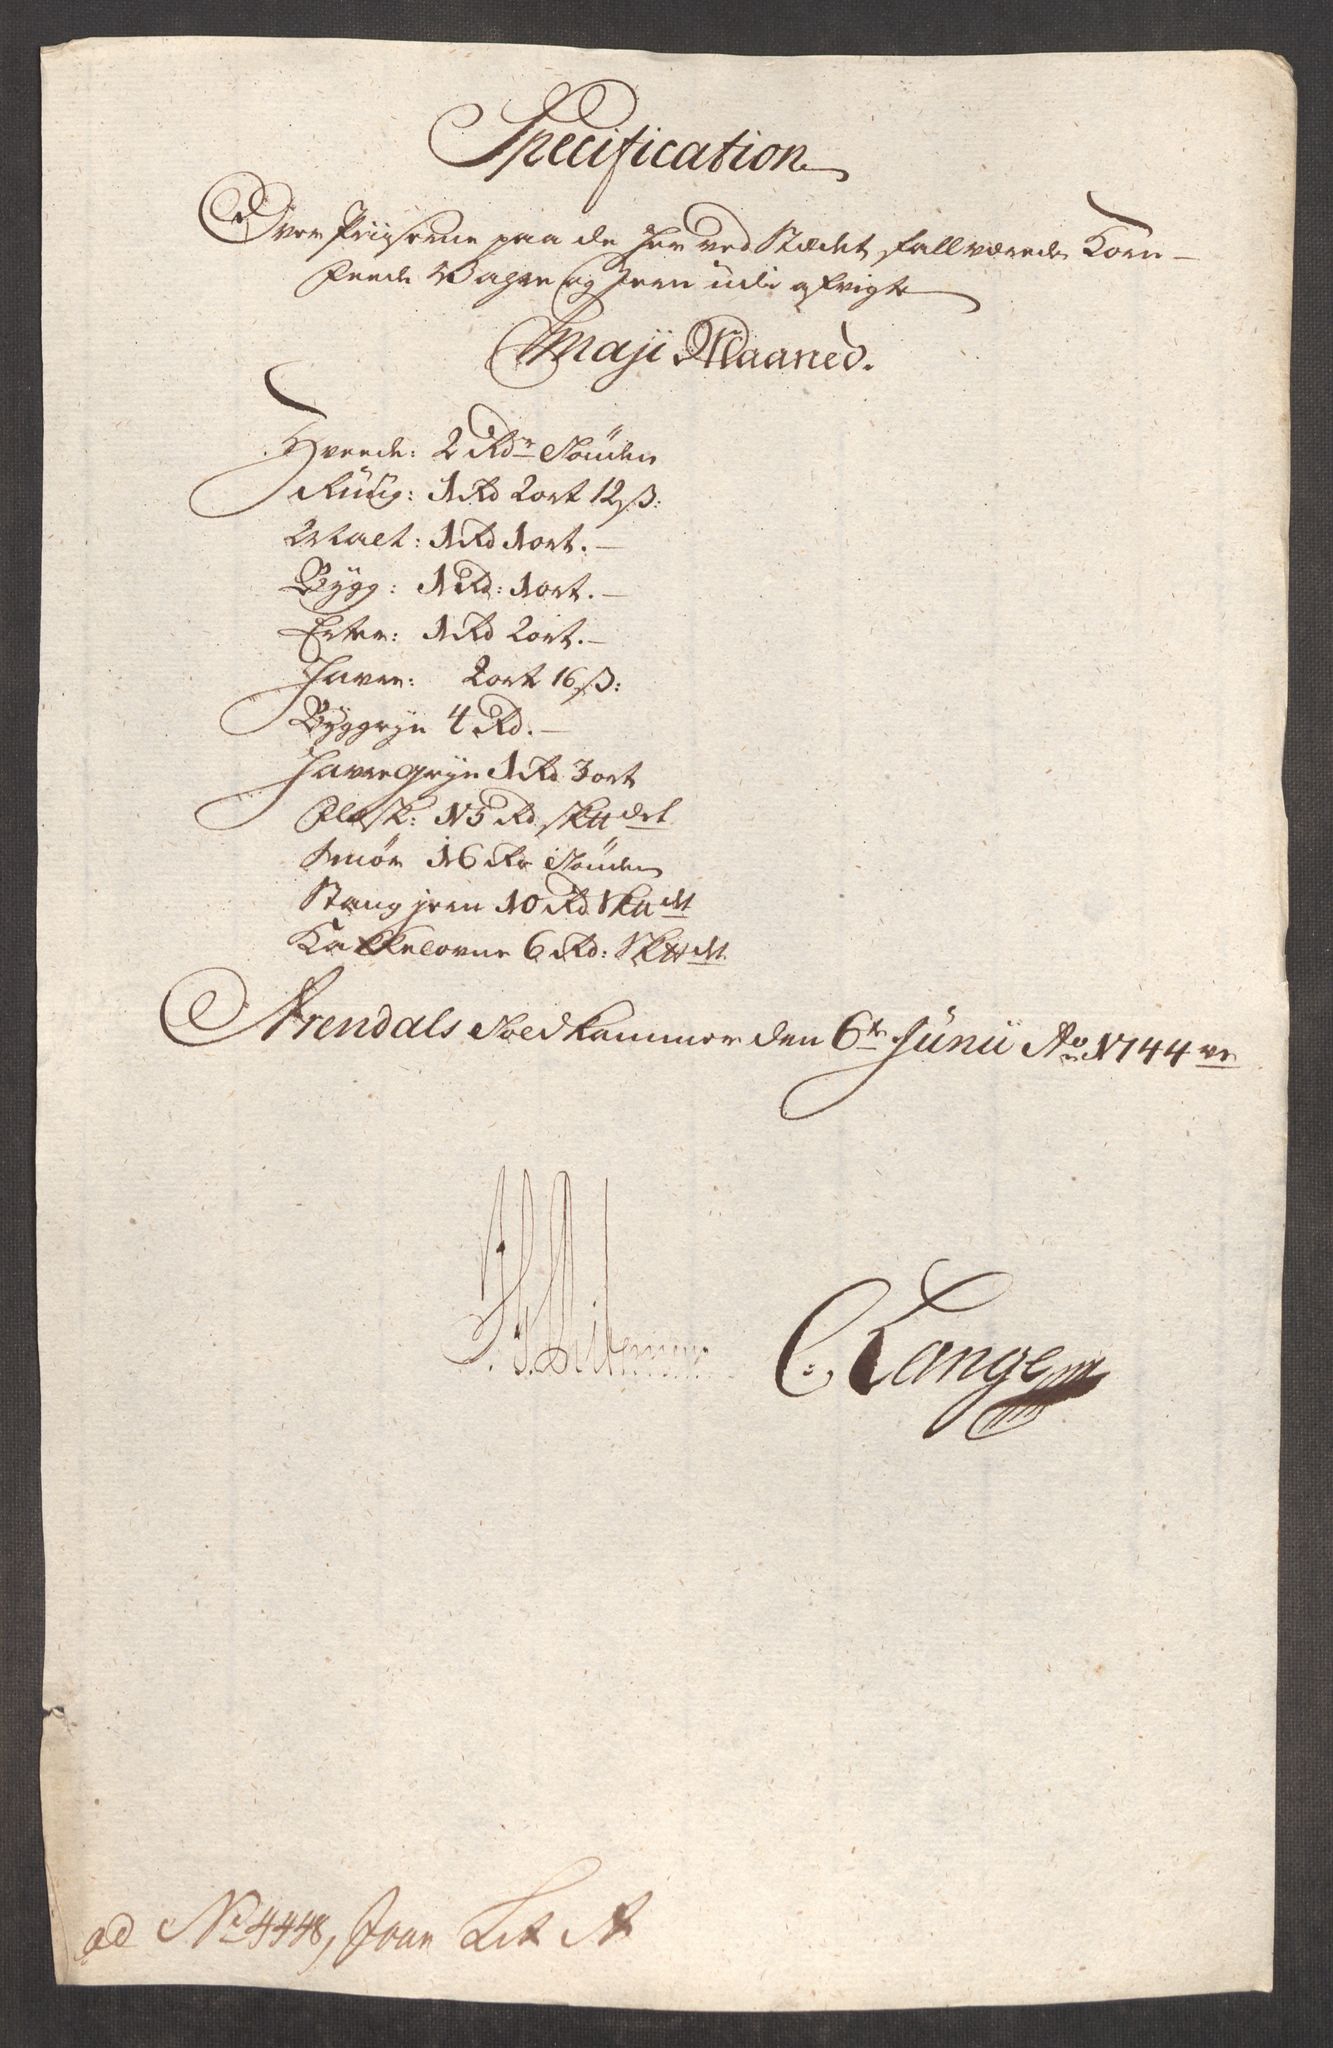 Specification
Over Priiserne paa de her ved Stædet fallværende Korn-
Feede Wahre og Jern udi afvigte
Maji Maaned.
Hveede: 2 Rdr Tønden
Rüug: 1 Rd 2 ort 12 ß:
Malt: 1 Rd 1 ort.—
Bÿgg: 1 Rd: 1 ort.—
Erter: 1 Rd 2 ort.—
Havre: 2 ort 16 ß:
Bÿggryn 4 Rd.—
Havregryn 1 Rd 3 ort
Flesk: 15 Rd
Smør 16 Rd Tønden
Stang jern 10 Rd
Kakkelovne 6 Rd:
Arendals Toldkammer den 6te Junii Ao 1744
C. Lange
ad No 4448, Lit A